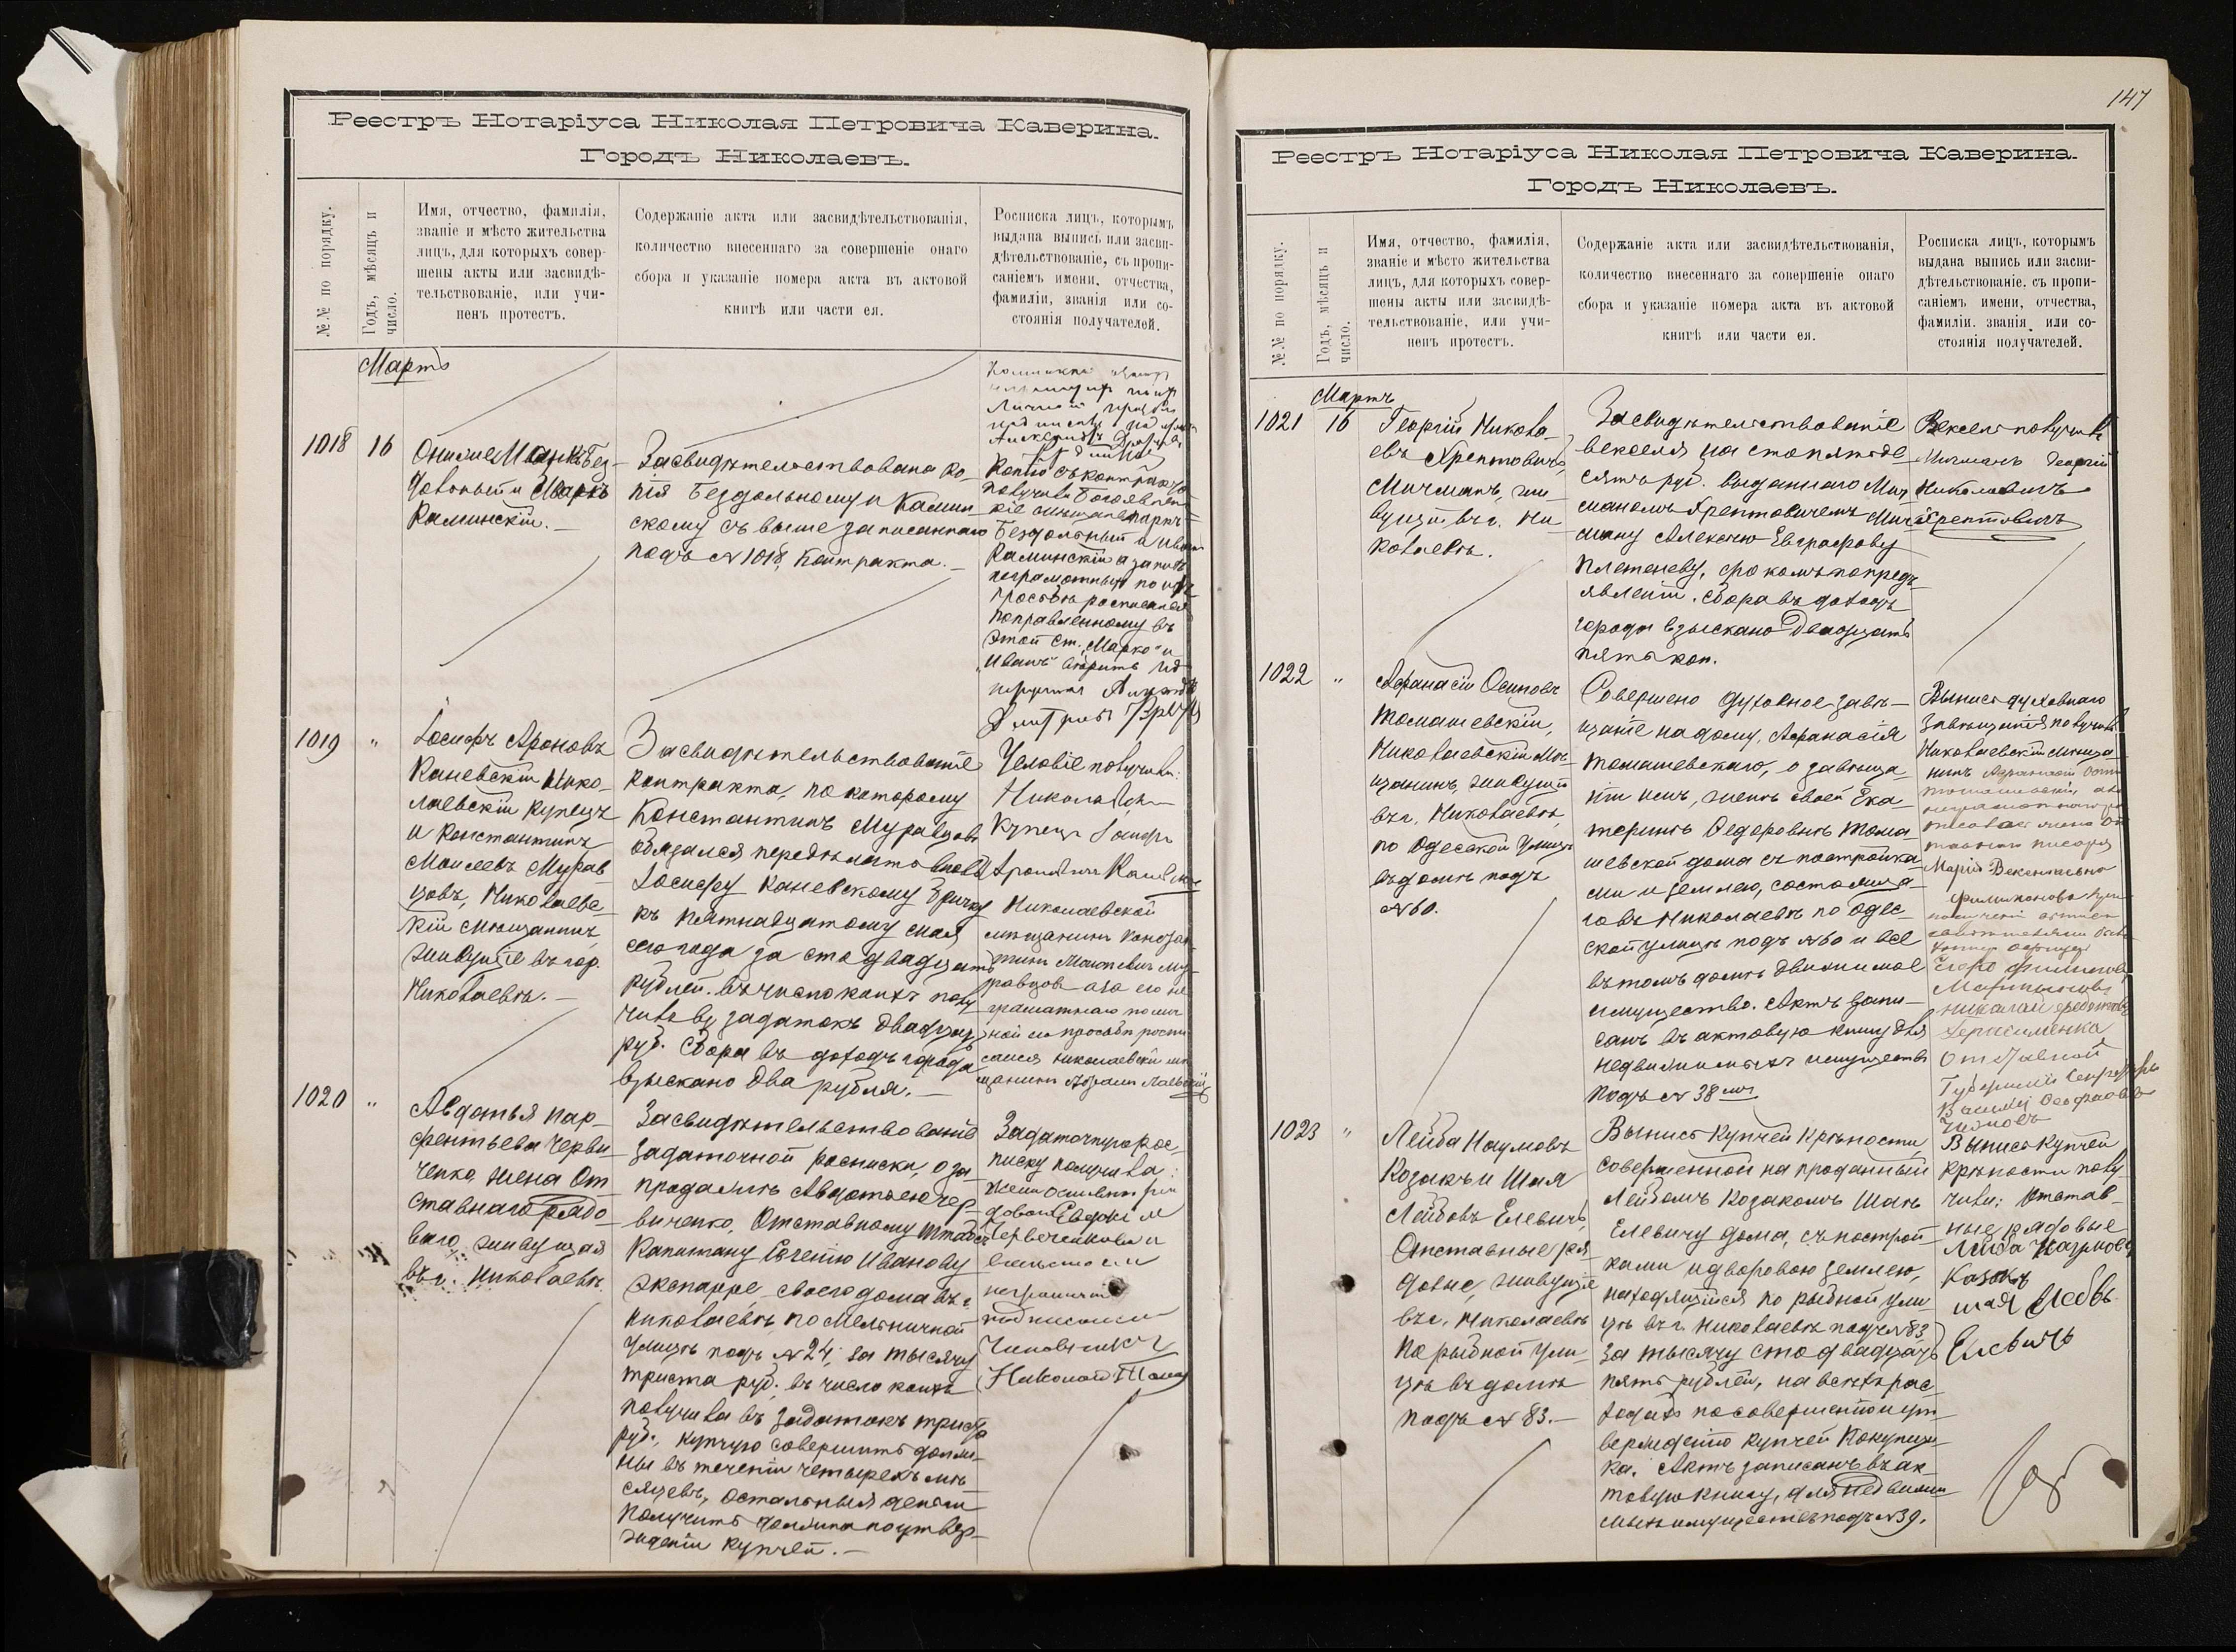 Реестръ Нотаріуса Николая Петровича Каверина.
Городъ Николаевъ.
№№ по порядку.
Годъ, мѣсяцъ и
число.
Имя, отчество, фамилія,
званіе и мѣсто жительства
лицъ, для которыхъ совер-
шены акты или засвидѣ-
тельствованіе, или учи-
ненъ протестъ.
Содержаніе акта или засвидѣтельствованія,
количество внесеннаго за совершеніе онаго
сбора и указаніе номера акта въ актовой
книгѣ или части ея.
Росписка лицъ, которымъ
выдана выпись или засви-
дѣтельствованіе, съ пропи-
саніемъ имени, отчества,
фамиліи, званія или со-
стоянія получателей.
Мартъ
1018
16
Каминскій.
Засвидѣтельствована ко-
пія Бездольному и Камин-
скому съ выше записаннаго
подъ № 1018, контракта.
Копію съ контракта
получили
Бездольный и Иванъ
Каминскій а за нихъ
неграмотныхъ по ихъ
просьбѣ росписался
поправленному въ
этой ст. „Марко" и
„Иванъ" вѣрить
1019
"
Іосифъ Ароновъ
Каневскій Нико-
лаевскій купецъ
и Константинъ
Моисеевъ Мурав-
цовъ, Николаевс-
кій мѣщанинъ,
живущіе въ гор.
Николаевѣ.
Засвидѣтельствованіе
контракта, по которому
Константинъ Муравцовъ
обязался передѣлать вновь
Іосифу Каневскому бричку
къ пятнадцатому мая
сего года за сто двадцать
рублей. въ число коихъ полу
чилъ въ задатокъ двадцать
руб. Сбора въ доходъ города
взыскано два рубля.
Условіе получили:
Купецъ Іосифъ
Николаевской
мѣщанинъ
1020
"
Авдотья Пар-
фентьева Черви-
ченко, жена От-
ставнаго рядо-
ваго, живущая
въ г. Николаевѣ.
Засвидѣтельствованіе
задаточной росписки, о за-
продажѣ Авдотьею Чер-
виченко, Отставному Штабсъ
Капитану Евгенію Иванову
Экспарре своего дома въ г.
Николаевѣ, по Мельничной
улицѣ подъ № 24, за тысячу
триста руб. въ число коихъ
получила въ задатокъ триста
руб., купчую совершить долж-
ны въ теченіи четырехъ мѣ-
сяцевъ, остальныя деньги
получить должна по утвер-
жденіи купчей.
Задаточную рос-
писку получила:
Николай
147
Реестръ Нотаріуса Николая Петровича Каверина.
Городъ Николаевъ.
№№ по порядку.
Годъ, мѣсяцъ и
число.
Имя, отчество, фамилія,
званіе и мѣсто жительства
лицъ, для которыхъ совер-
шены акты или засвидѣ-
тельствованіе, или учи-
ненъ протестъ.
Содержаніе акта или засвидѣтельствованія,
количество внесеннаго за совершеніе онаго
сбора и указаніе номера акта въ актовой
книгѣ или части ея.
Росписка лицъ, которымъ
выдана выпись или засви-
дѣтельствованіе. съ пропи-
саніемъ имени, отчества,
фамиліи. званія или со-
стоянія получателей.
Мартъ
1021
16
Георгій Никола-
евъ Хрептовичъ,
Мичманъ, жи-
вущій въ г. Ни-
колаевѣ.
Засвидѣтельствованіе
векселя на сто пятьде-
сятъ руб. выданнаго Мич
маномъ Хрептовичемъ Мич-
ману Алексѣю Евграфову
Плетеневу, срокомъ по предъ
явленіи. Сбора въ доходъ
города взыскано двадцать
пять коп.
Вексель получилъ
Мичманъ Георгій
Николаевичъ
Хрептовичъ
1022
"
Афанасій Осиповъ
Томашевскій,
Николаевскій Мѣ-
щанинъ, живущій
въ г. Николаевѣ,
по Одесской улицѣ
въ домѣ подъ
№ 60.
Совершено духовное завѣ-
щаніе на дому, Афанасія
Томашевскаго, о завѣща-
ніи имъ, женѣ своей Ека-
теринѣ Федоровнѣ Тома-
шевской дома съ постройка
ми и землею, состояща-
го въ Николаевѣ по Одес-
ской улицѣ подъ № 60 и все
въ томъ домѣ движимое
имущество. Актъ запи-
санъ въ актовую книгу для
недвижимыхъ имуществъ
подъ № 38мъ
Выпись духовнаго
завѣщанія получилъ
Николаевскій мѣща
нинъ
Отставной
1023
"
Лейба Наумовъ
Козакъ и Шая
Лейбовъ Елевичъ,
Отставные ря-
довые, живущіе
въ г. Николаевѣ
по рыбной ули-
цѣ въ домѣ
подъ № 83.
Выпись купчей крѣпости,
совершенной на проданный
Лейбомъ Козакомъ Шаѣ
Елевичу дома, съ построй-
ками и дворовою землею,
находящійся по рыбной ули
цѣ въ г. Николаевѣ подъ № 83
за тысячу сто двадцать
пять рублей, на всѣхъ рас-
ходахъ по совершенію и ут-
вержденію купчей покупщи-
ка. Актъ записанъ въ ак-
товую книгу, для недвижи
мыхъ имуществъ подъ № 39.
Выпись купчей
крѣпости полу
чили: Отстав-
ные рядовые
Лейба Наумовъ
Козакъ
Шая Лейбъ
Елевичъ